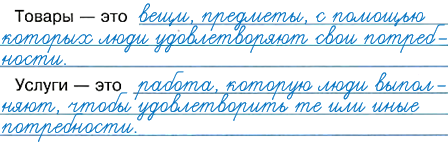 Товары — это вещи, предметы, с помощью
которых люди удовлетворяют свои потреб-
ности.
Услуги — это работа, которую люди выпол-
няют, чтобы удовлетворить те или иные
потребности.